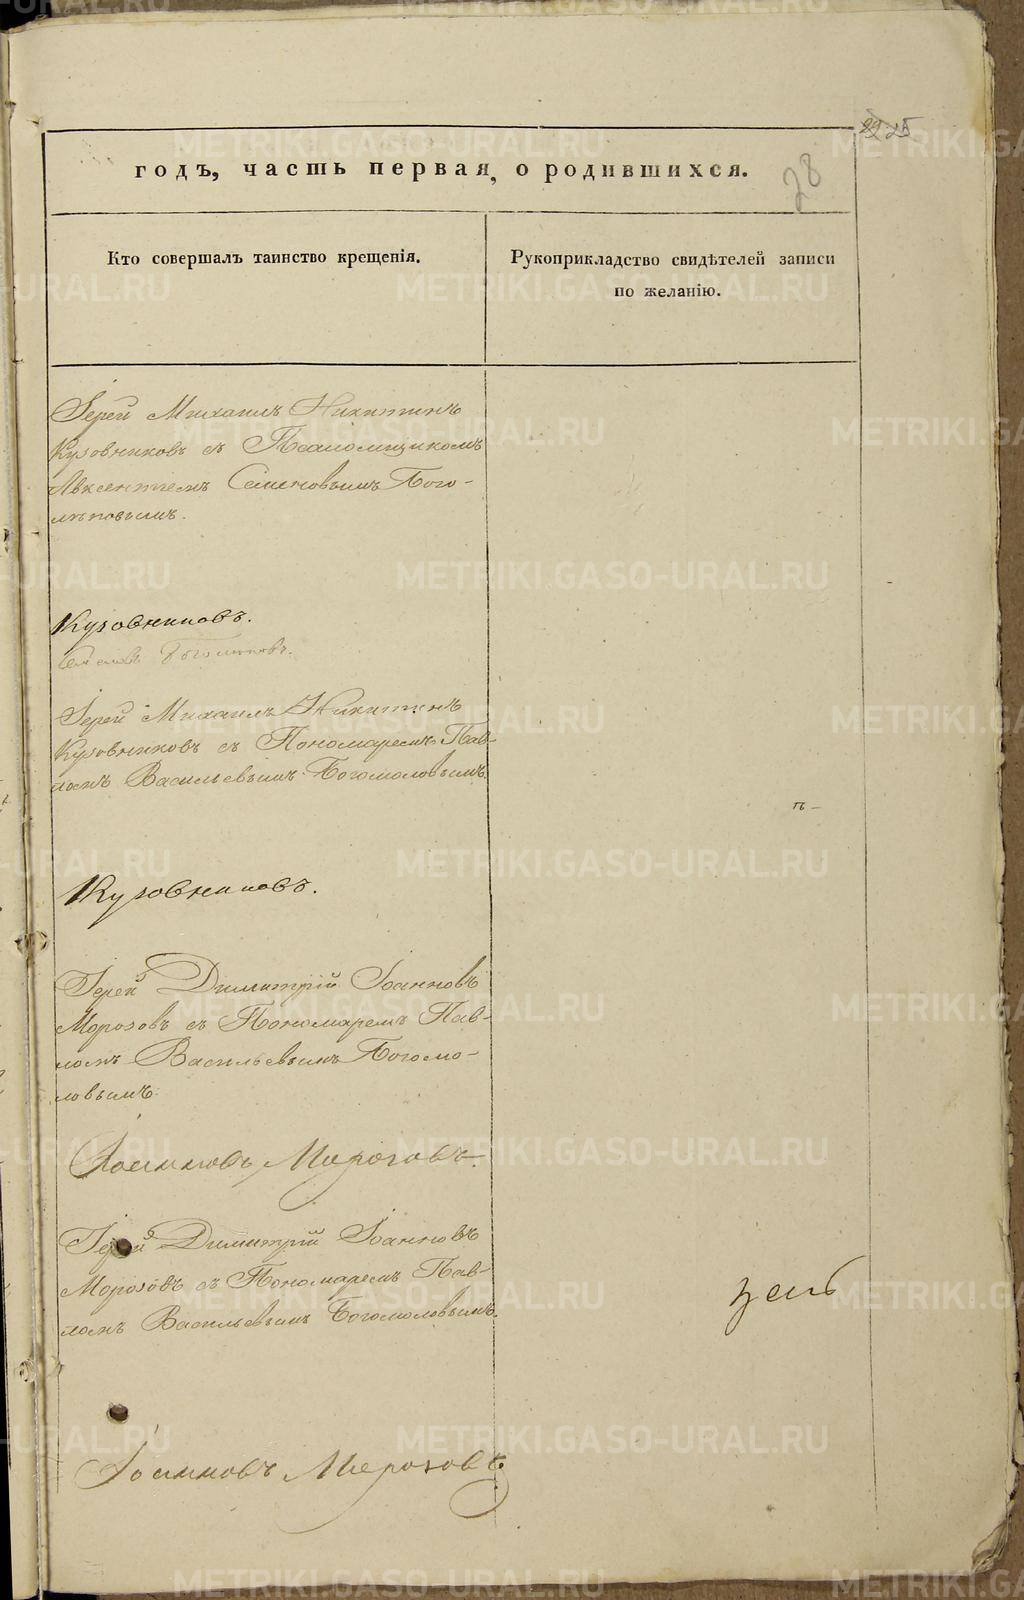 25
28
годъ, часть первая, о родившихся.
Кто совершалъ таинство крещенія.
Рукоприкладство свидѣтелей записи
по желанію.
Іерей Михаилъ Никитинъ
Кузовниковъ съ Псаломщикомъ
Авксентіемъ Семеновымъ Бого-
лѣповымъ.
Кузовниковъ.
Іерей Михаилъ Никитинъ
Кузовниковъ съ Пономаремъ Пав-
ломъ Васильевымъ Богомоловымъ.
Кузовниковъ.
Іерей Димитрій Іоанновъ
Морозовъ съ Пономаремъ Пав-
ломъ Васильевымъ Богомо-
ловымъ.
Іоанновъ Морозовъ.
Іерей Димитрій Іоанновъ
Морозовъ съ Пономаремъ Пав-
ломъ Васильевымъ Богомоловымъ.
Іоанновъ Морозовъ
METRIKI.GASO-URAL.RU